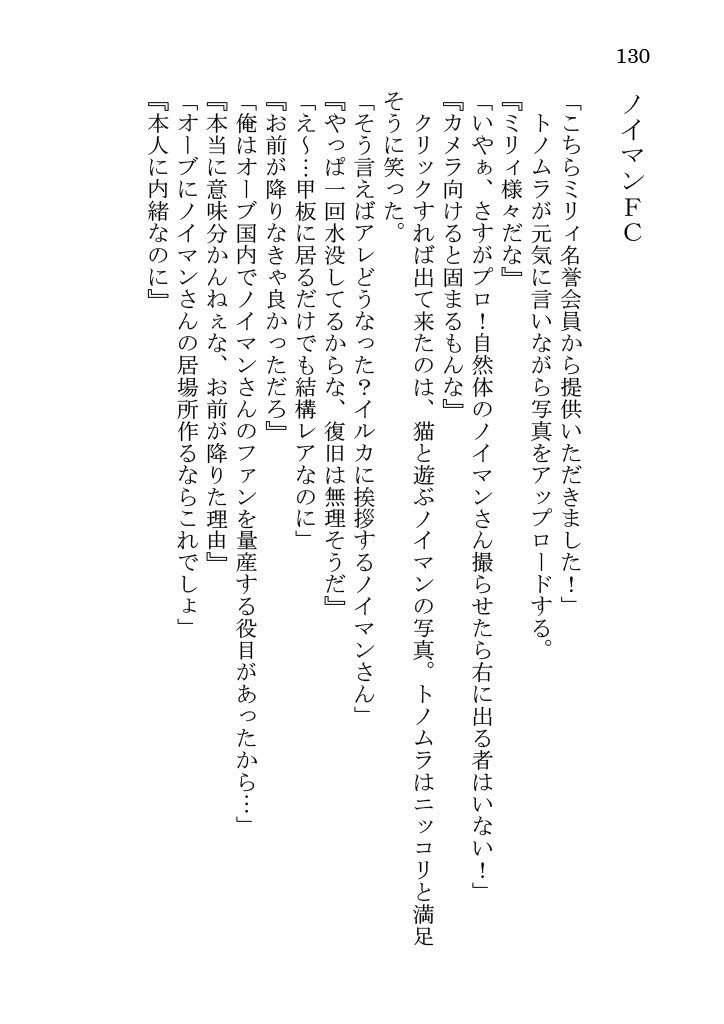 130
ノイマンFC
「こちらミリィ名誉会員から提供いただきました！」
　トノムラが元気に言いながら写真をアップロードする。
『ミリィ様々だな』
「いやぁ、さすがプロ！自然体のノイマンさん撮らせたら右に出る者はいない！」
『カメラ向けると固まるもんな』
　クリックすれば出て来たのは、猫と遊ぶノイマンの写真。トノムラはニッコリと満足
そうに笑った。
「そう言えばアレどうなった？イルカに挨拶するノイマンさん」
『やっぱ一回水没してるからな、復旧は無理そうだ』
「え～…甲板に居るだけでも結構レアなのに」
『お前が降りなきゃ良かっただろ』
「俺はオーブ国内でノイマンさんのファンを量産する役目があったから…」
『本当に意味分かんねぇな、お前が降りた理由』
「オーブにノイマンさんの居場所作るならこれでしょ」
『本人に内緒なのに』